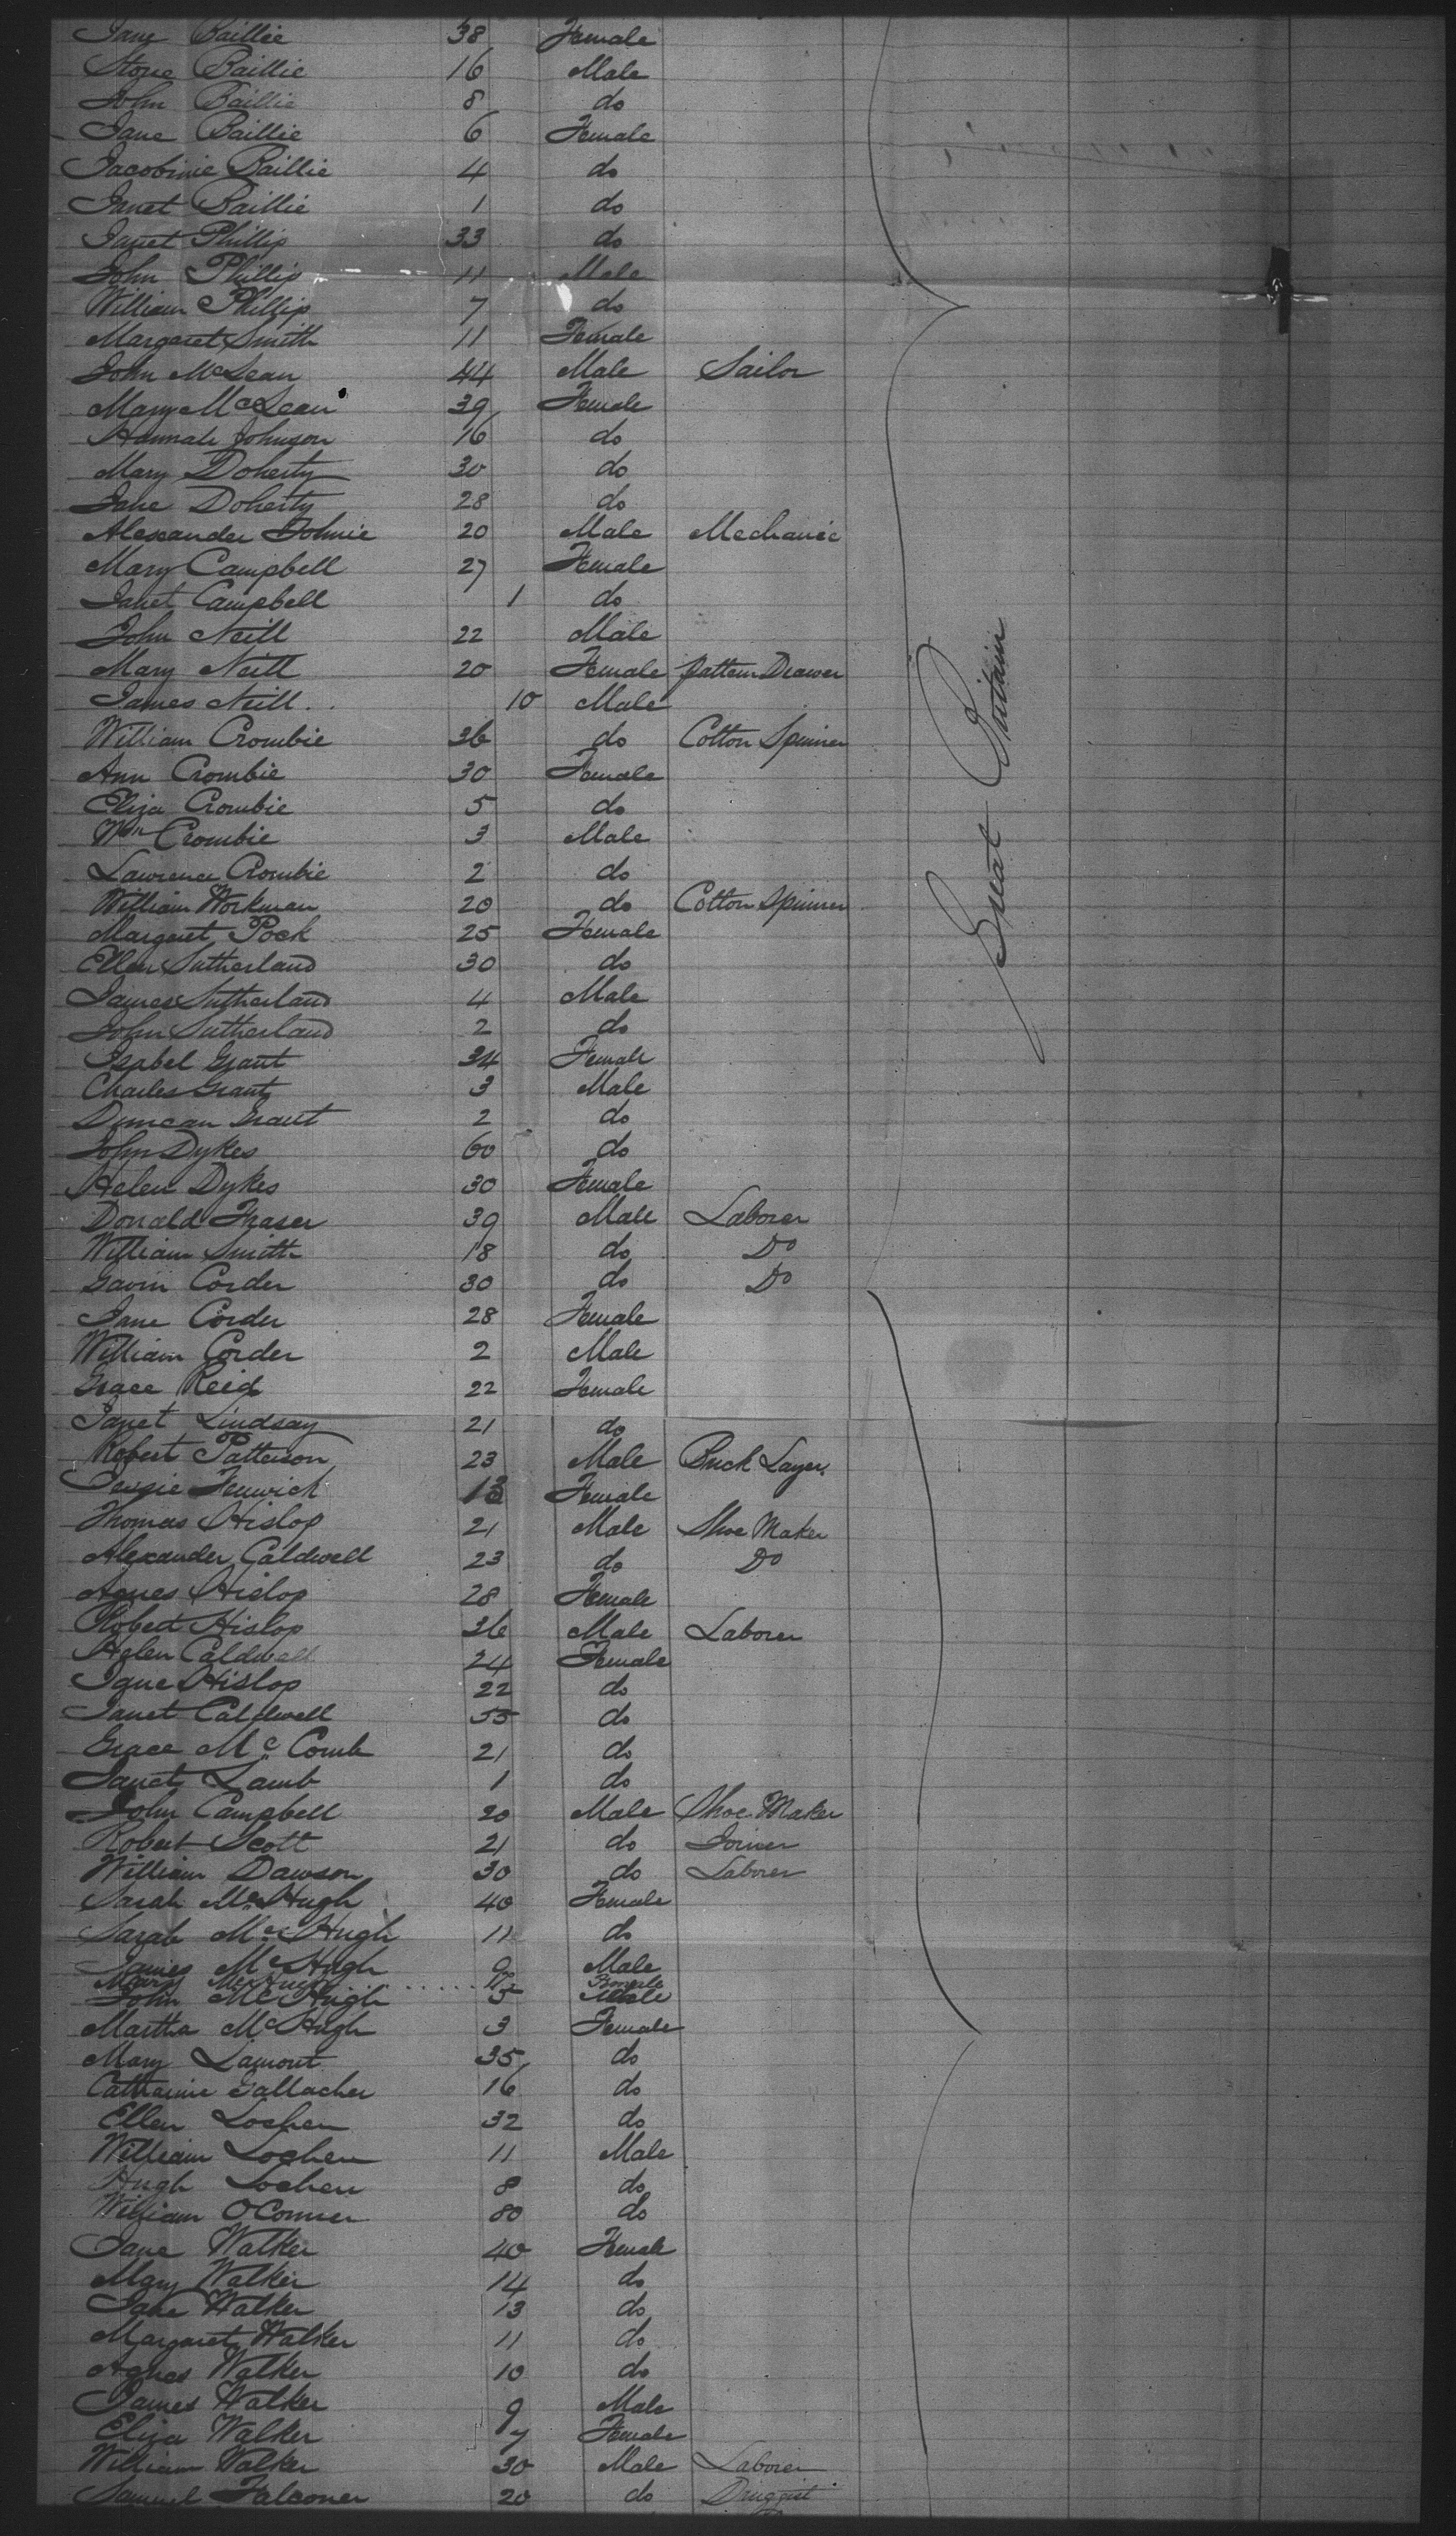 Jane Baillie 38 Female
Stone Baillie 16 Male
John Baillie 8 do
Jane Baillie 6 Female
Jacobinie Baillie 4 do
Janet Baillie 1 do
Janet Phillip 33 do
John Phillip 11 Male
William Phillip 7 do
Margaret Smith 11 Female
John McLean 44 Male Sailor
Mary McLean 39 Female
Hannah Johnson 16 do
Mary Doherty 30 do
Jane Doherty 28 do
Alexander 20 Male Mechanic
Mary Campbell 27 Female
Janet Campbell 1 do
John Neill 22 Male
Mary Neill 20 Female Pattern Drawer
James Neill 10 Male
William Crombie 36 do Cotton Spinner
Ann Crombie 30 Female
Eliza Crombie 5 do
Wm Crombie 3 Male
Lawrence Crombie 2 do
William Workman 20 do Cotton Spinner
Margaret Pock 25 Female
Ellen Sutherland 30 do
James Sutherland 4 Male
John Sutherland 2 do
Isabel Grant 34 Female
Charles Grant 3 Male
Duncan Grant 2 do
John Dykes 60 do
Helen Dykes 30 Female
Donald Fraser 39 Male Laborer
William Smith 18 do Do
Gavin Corder 30 do Do
Jane Corder 28 Female
William Corder 2 Male
Grace Reid 22 Female
Janet Lindsay 21 do
Robert Patterson 23 Male Brick Layer
Jessie Fenwick 13 Female
Thomas Hislop 21 Male Shoe Maker
Alexander Caldwell 23 do Do
Agnes Hislop 28 Female
Robert Hislop 36 Male Laborer
Helen Caldwell 24 Female
Jane Hislop 22 do
Janet Caldwell 55 do
Grace Mc Comb 21 do
Janet Lamb 1 do
John Campbell 20 Male Shoe Maker
Robert Scott 21 do Joiner
William Dawson 30 do Laborer
Sarah McHugh 40 Female
Sarah McHugh 11 do
James McHugh 9 Male
Mary McHugh Female
John McHugh 5 Male
Martha McHugh 3 Female
Mary Lamont 35 do
Catharine Gallacher 16 do
Ellen Lochen 32 do
William Lochen 11 Male
Hugh Lochen 8 do
William OConner 80 do
Jane Walker 40 Female
Mary Walker 14 do
Jane Walker 13 do
Margaret Walker 11 do
Agnes Walker 10 do
James Walker 9 Male
Eliza Walker 7 Female
William Walker 30 Male Laborer
Samuel Falconer 20 do Druggist
Great Britain